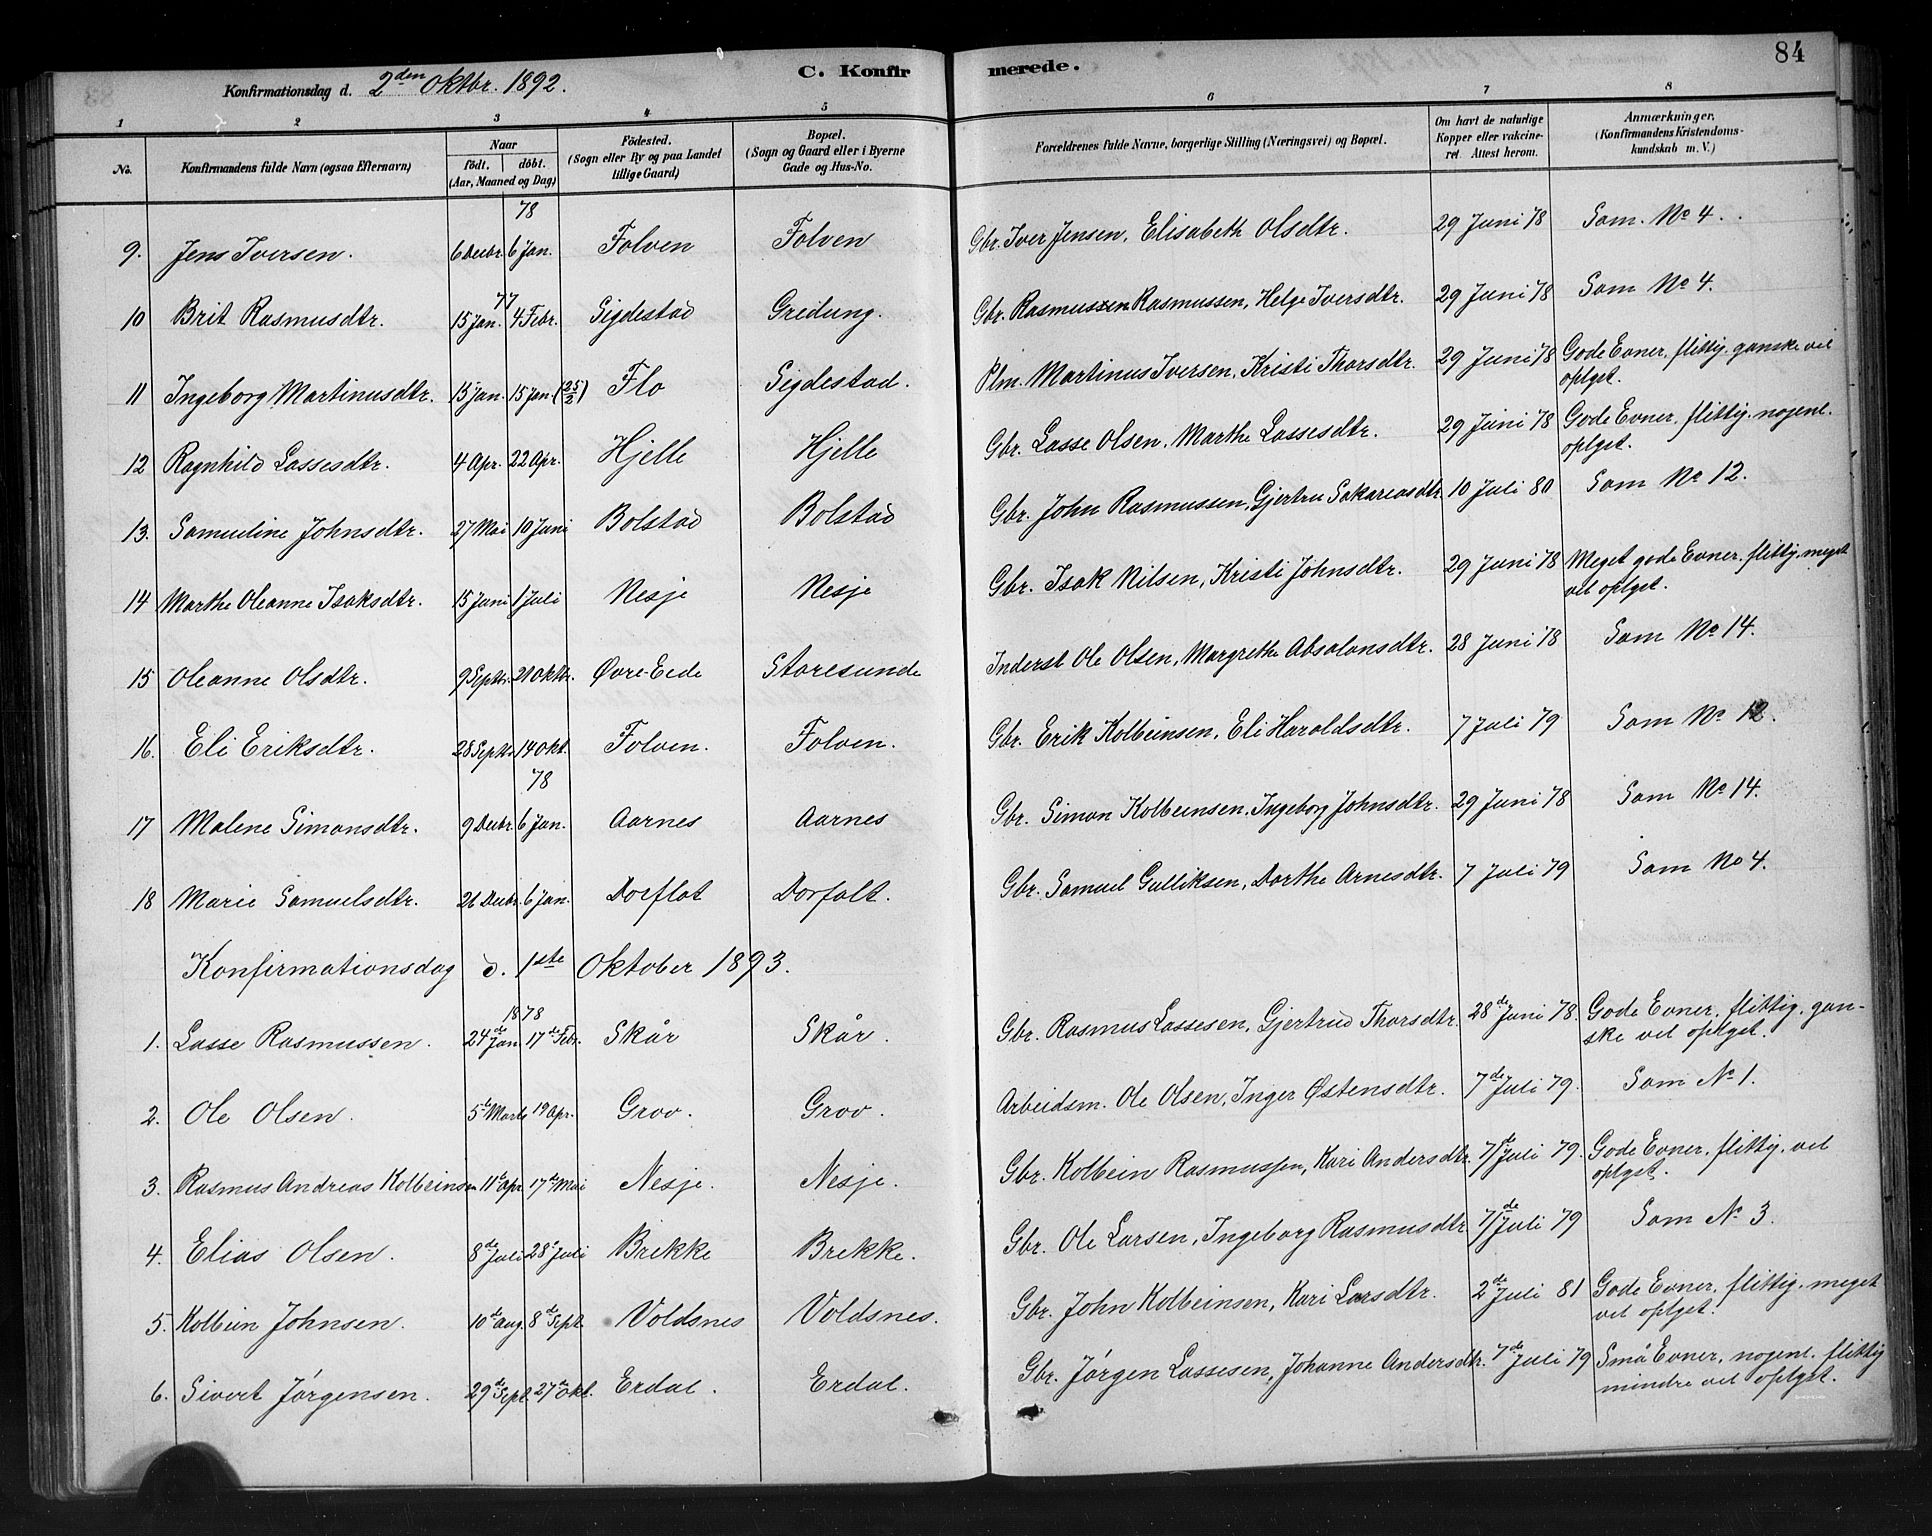 84
C. Konfirmerede.
Konfirmationsdag d. 2den Oktbr. 1892.
1 2 3 4 5 6 7 8
No. Konfirmandens fulde Navn (ogsaa Efternavn) Naar født. døbt. (Aar, Maaned og Dag) Fødested. (Sogn eller By og paa Landet tillige Gaard) Bopæl. (Sogn og Gaard eller i Byerne Gade og Hus-No. Forældrenes fulde Navne, borgerlige Stilling (Næringsvei) og Bopæl. Om havt de naturlige Kopper eller vakcineret. Attest herom. Anmærkninger. (Konfirmandens Kristendomskundskab m. V.)
78
9. Jens Iversen. 6 Decbr. 6 Jan. Folven Folven Gbr. Iver Jensen, Elisabeth Olsdtr. 29 Juni 78 Som No 4.
77
10 Brit Rasmusdtr. 15 Jan. 4 Febr. Sigdestad Greidung. Gbr. Rasmus Rasmussen, Helge Iversdtr. 29 Juni 78 Som No 4.
11 Ingeborg Martinusdtr. 15 Jan. 15 Jan. (25/2) Flo Sigdestad. Plm. Martinus Iversen, Kristi Thorsdtr. 29 Juni 78 Gode Evner, flittig, ganske vel
oplyst.
12 Ragnhild Lassesdtr. 4 Apr. 22 Apr. Hjelle Hjelle Gbr. Lasse Olsen, Marthe Lassesdtr. 29 Juni 78 Gode Evner, flittig, nogenl.
oplyst.
13. Samueline Johnsdtr. 27 Mai 10 Juni Bolstad Bolstad Gbr. John Rasmussen, Gjertru Sakariasdtr 10 Juli 80 Som No 12.
14 Marthe Oleanne Isaksdtr. 15 Juni 1 Juli Nesje Nesje Gbr. Isak Nilsen, Kristi Johnsdtr. 29 Juni 78 Meget gode Evner, flittig, meget
vel oplyst.
15 Oleanne Olsdtr. 9 Septbr. 21 Oktbr. Øvre-Eede Storesunde Inderst Ole Olsen, Margrethe Absalonsdtr. 28 Juni 78 Som No 14.
16. Eli Eriksdtr. 28 Septbr 14 Okt. Folven. Folven. Gbr. Erik Kolbeinsen, Eli Haroldsdtr. 7 Juli 79 Som No 12.
78
17 Malene Simonsdtr. 9 Decbr 6 Jan. Aarnes Aarnes Gbr. Simon Kolbeinsen, Ingeborg Johnsdtr. 29 Juni 78 Som No 14.
18 Marie Samuelsdtr. 26 Decbr. 6 Jan. Dorflot Dorfalt. Gbr. Samuel Gulliksen, Dorthe Arnesdtr. 7 Juli 79 Som No 4.
Konfirmationsdag d. 1ste Oktober 1893.
1878
1. Lasse Rasmussen. 24de Jan 17de Febr. Skår Skår. Gbr. Rasmus Lassesen, Gjertrud Thorsdtr. 28de Juni 78. Gode Evner, flittig, gan-
ske vel oplyst.
2. Ole Olsen. 5te Marts 19 Apr. Grov. Grov. Arbeidsm. Ole Olsen, Inger Østensdtr. 7de Juli 79. Som No 1.
3. Rasmus Andreas Kolbeinsen 11te Apr. 17de Mai Nesje. Nesje. Gbr. Kolbein Rasmussen, Kari Andersdtr. 7de Juli 79. Gode Evner, flittig, vel
oplyst.
4. Elias Olsen. 8de Juli 28de Juli Brekke Brekke. Gbr. Ole Larsen, Ingeborg Rasmusdtr 7de Juli 79 Som No 3.
5. Kolbein Johnsen. 10de Aug. 8de Sept. Voldsnes Voldsnes. Gbr. John Kolbeinsen, Kari Larsdtr. 2de Juli 81 Gode Evner, flittig, meget
vel oplyst.
6. Sivert Jørgensen. 29de Sept. 27de Okt. Erdal. Erdal. Gbr. Jørgen Lassesen, Johanne Andersdtr. 7de Juli 79 Små Evner, nogenl. flittig
mindre vel oplyst.